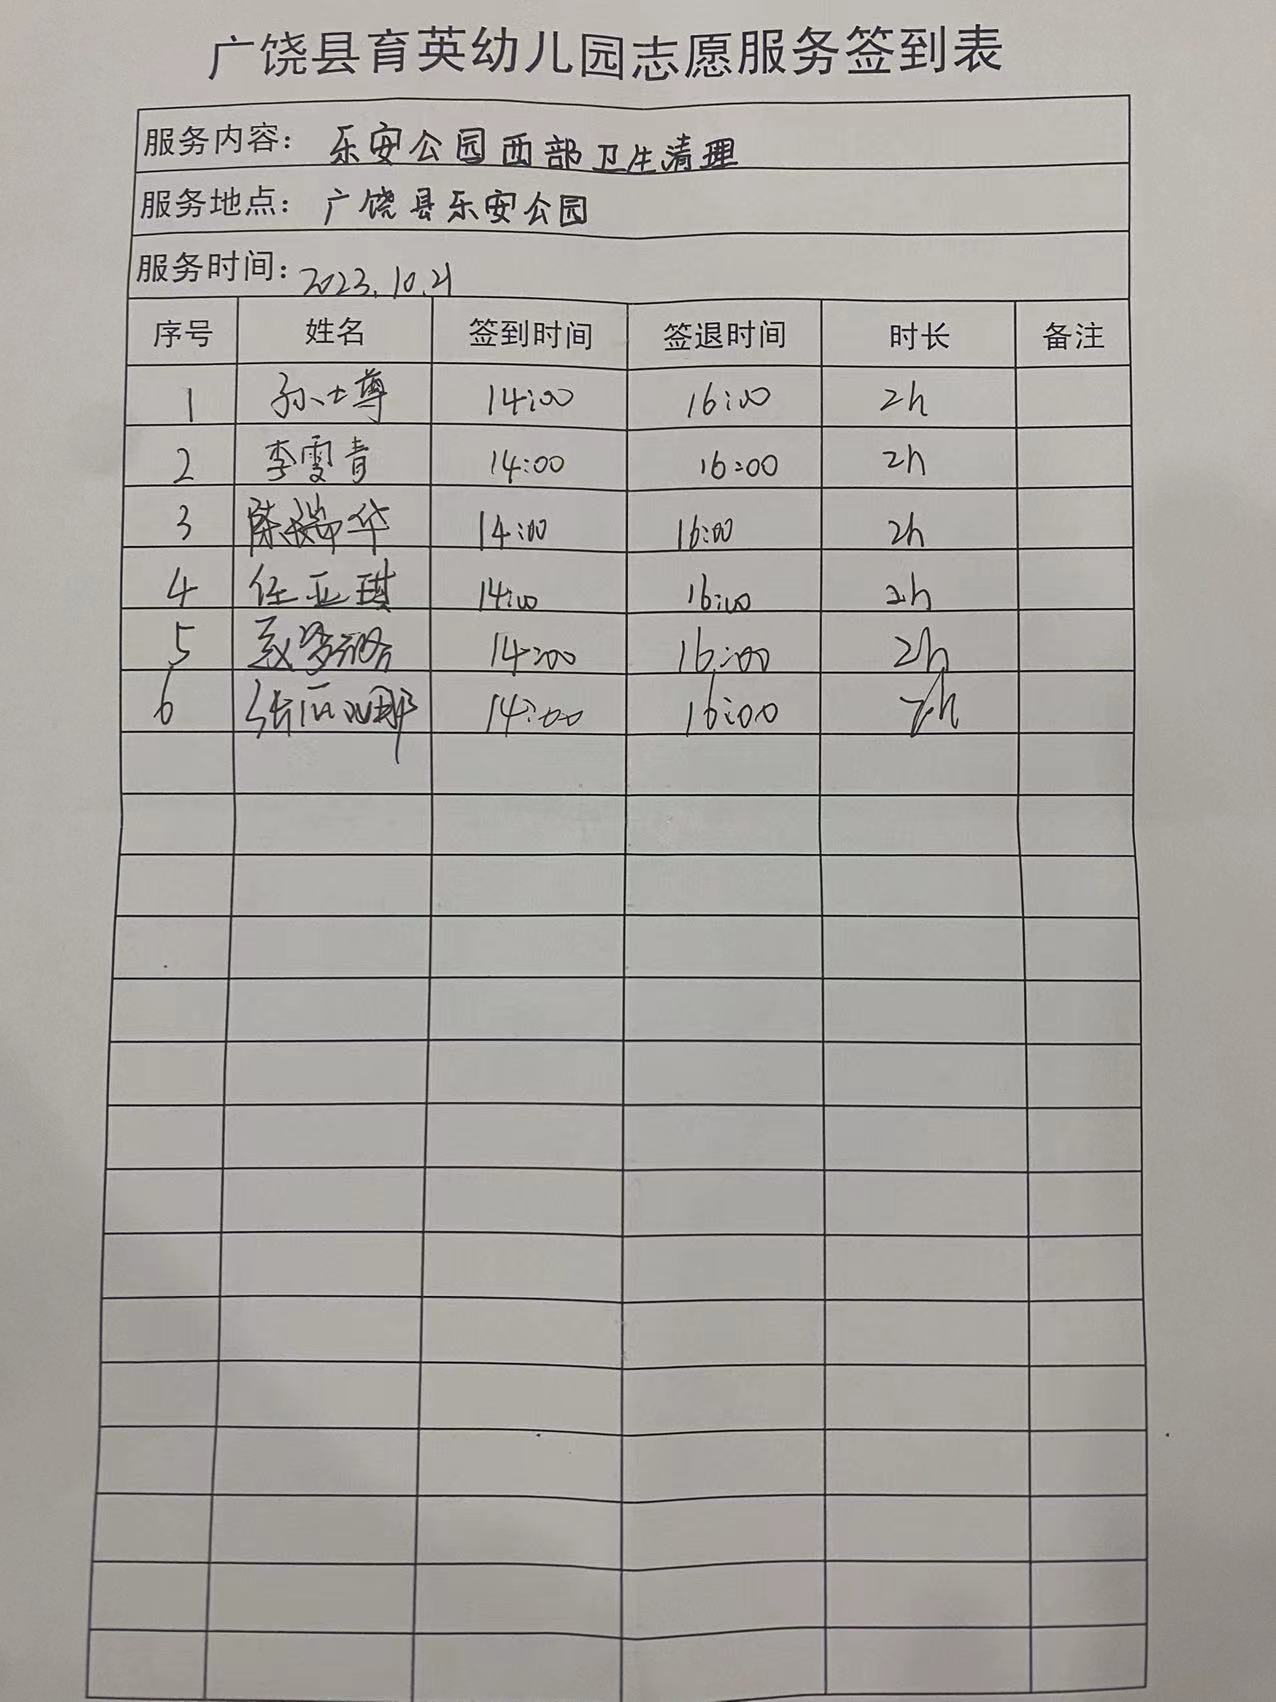 广饶县育英幼儿园志愿服务签到表
服务内容： 乐安公园西部卫生清理
服务地点： 广饶县乐安公园
服务时间： 2023.10.21
序号 姓名 签到时间 签退时间 时长 备注
1 孙士尊 14:00 16:00 2h
2 李雯青 14:00 16:00 2h
3 陈瑞华 14:00 16:00 2h
4 任亚琪 14:00 16:00 2h
5 14:00 16:00 2h
6 14:00 16:00 2h